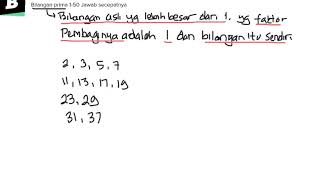 B
Bilangan prima 1-50 Jawab secepatnya
Bilangan asli yg lebih besar dari 1. yg faktor
Pembaginya adalah 1 dan bilangan itu sendiri.
2, 3, 5, 7
11, 13, 17, 19
23, 29
31, 37